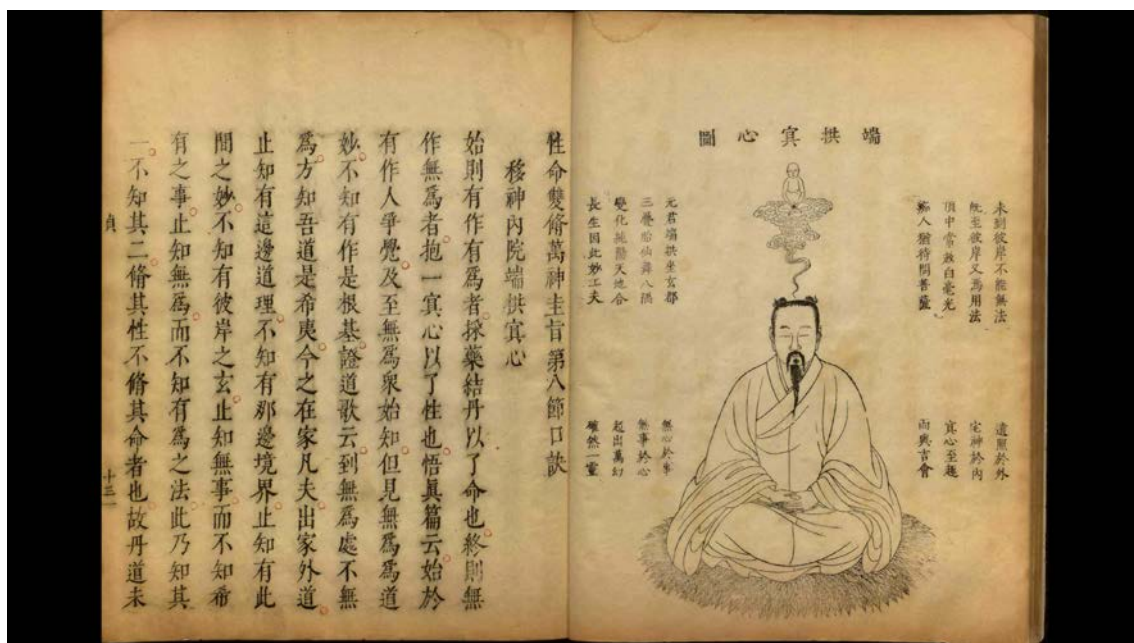 端拱㝠心圖
未到彼岸不能無法
旣至彼岸又焉用法
頂中常放白毫光
癡人猶待問菩薩
遺照於外
宅神於內
㝠心至趣
而與吉會
元君端拱坐玄都
三疊胎仙舞八隅
變化純陽天地合
長生因此妙工夫
無心於事
無事於心
超出萬幻
確然一靈
性命雙脩萬神圭旨第八節口訣
移神內院端拱㝠心
始則有作有爲者採藥結丹以了命也終則無
作無爲者抱一㝠心以了性也悟眞篇云始於
有作人爭覺及至無爲衆始知但見無爲爲道
妙不知有作是根基證道歌云到無爲處不無
爲方知吾道是希夷今之在家凡夫出家外道
止知有這邊道理不知有那邊境界止知有此
間之妙不知有彼岸之玄止知無事而不知希
有之事止知無爲而不知有爲之法此乃知其
一不知其二脩其性不脩其命者也故丹道未
貞